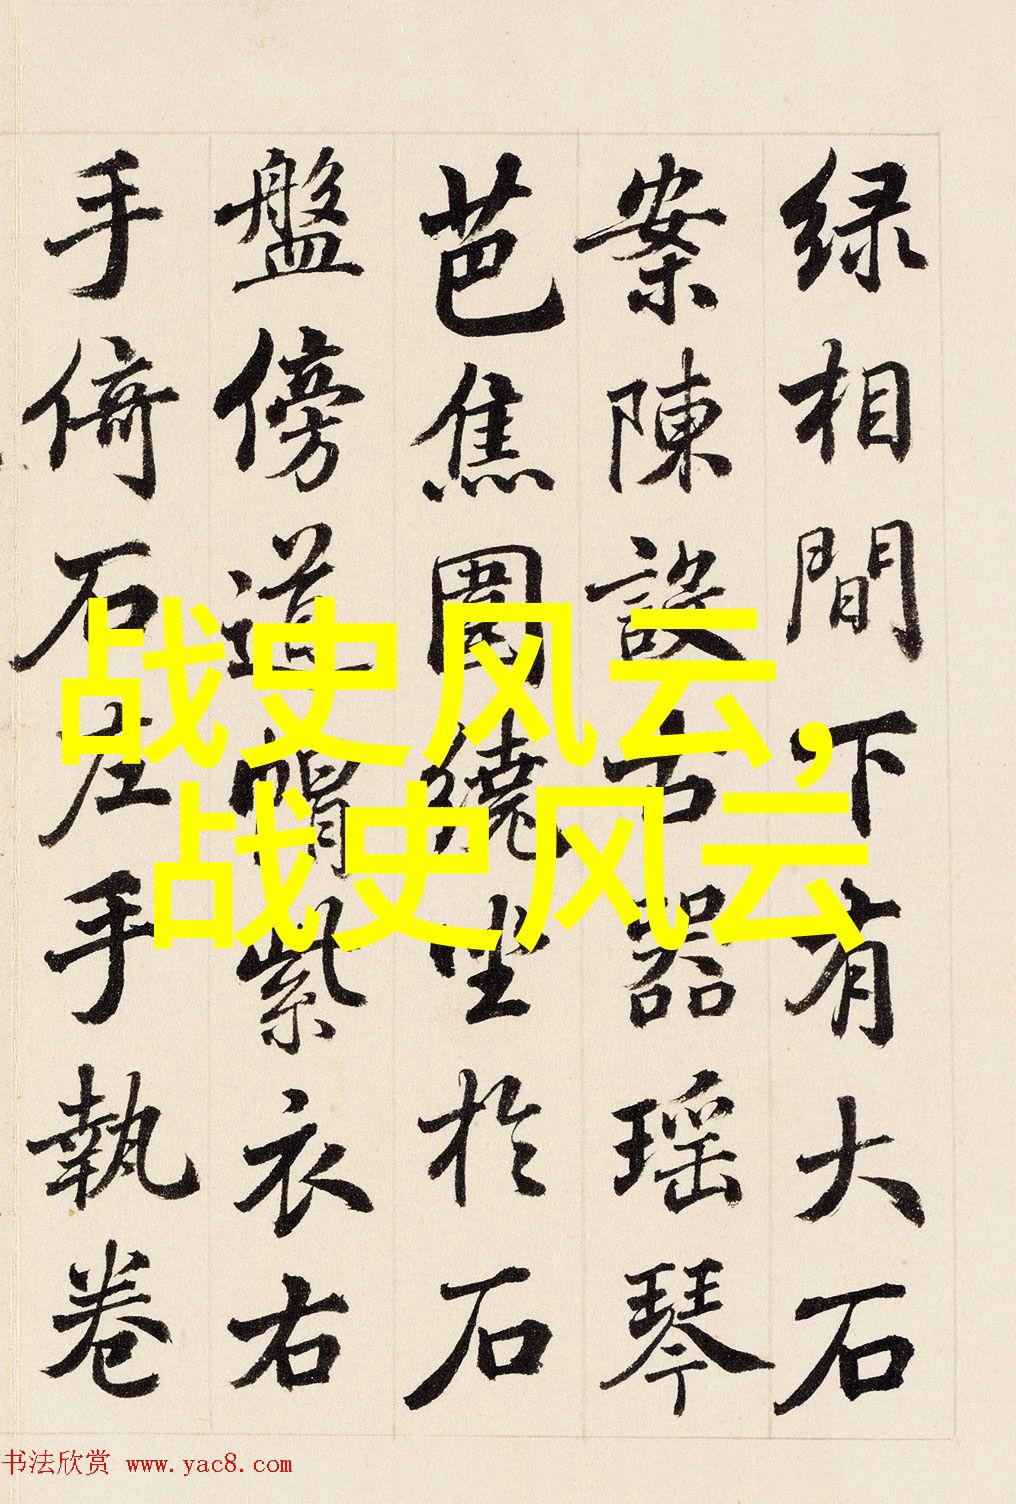 绿相間下有大石
案陳設古器瑶琴
芭焦圍繞坐於石
盤傍道帽紫衣右
手倚石左手執卷
战史风云,
战史风云
书法欣赏 www.yac8.com